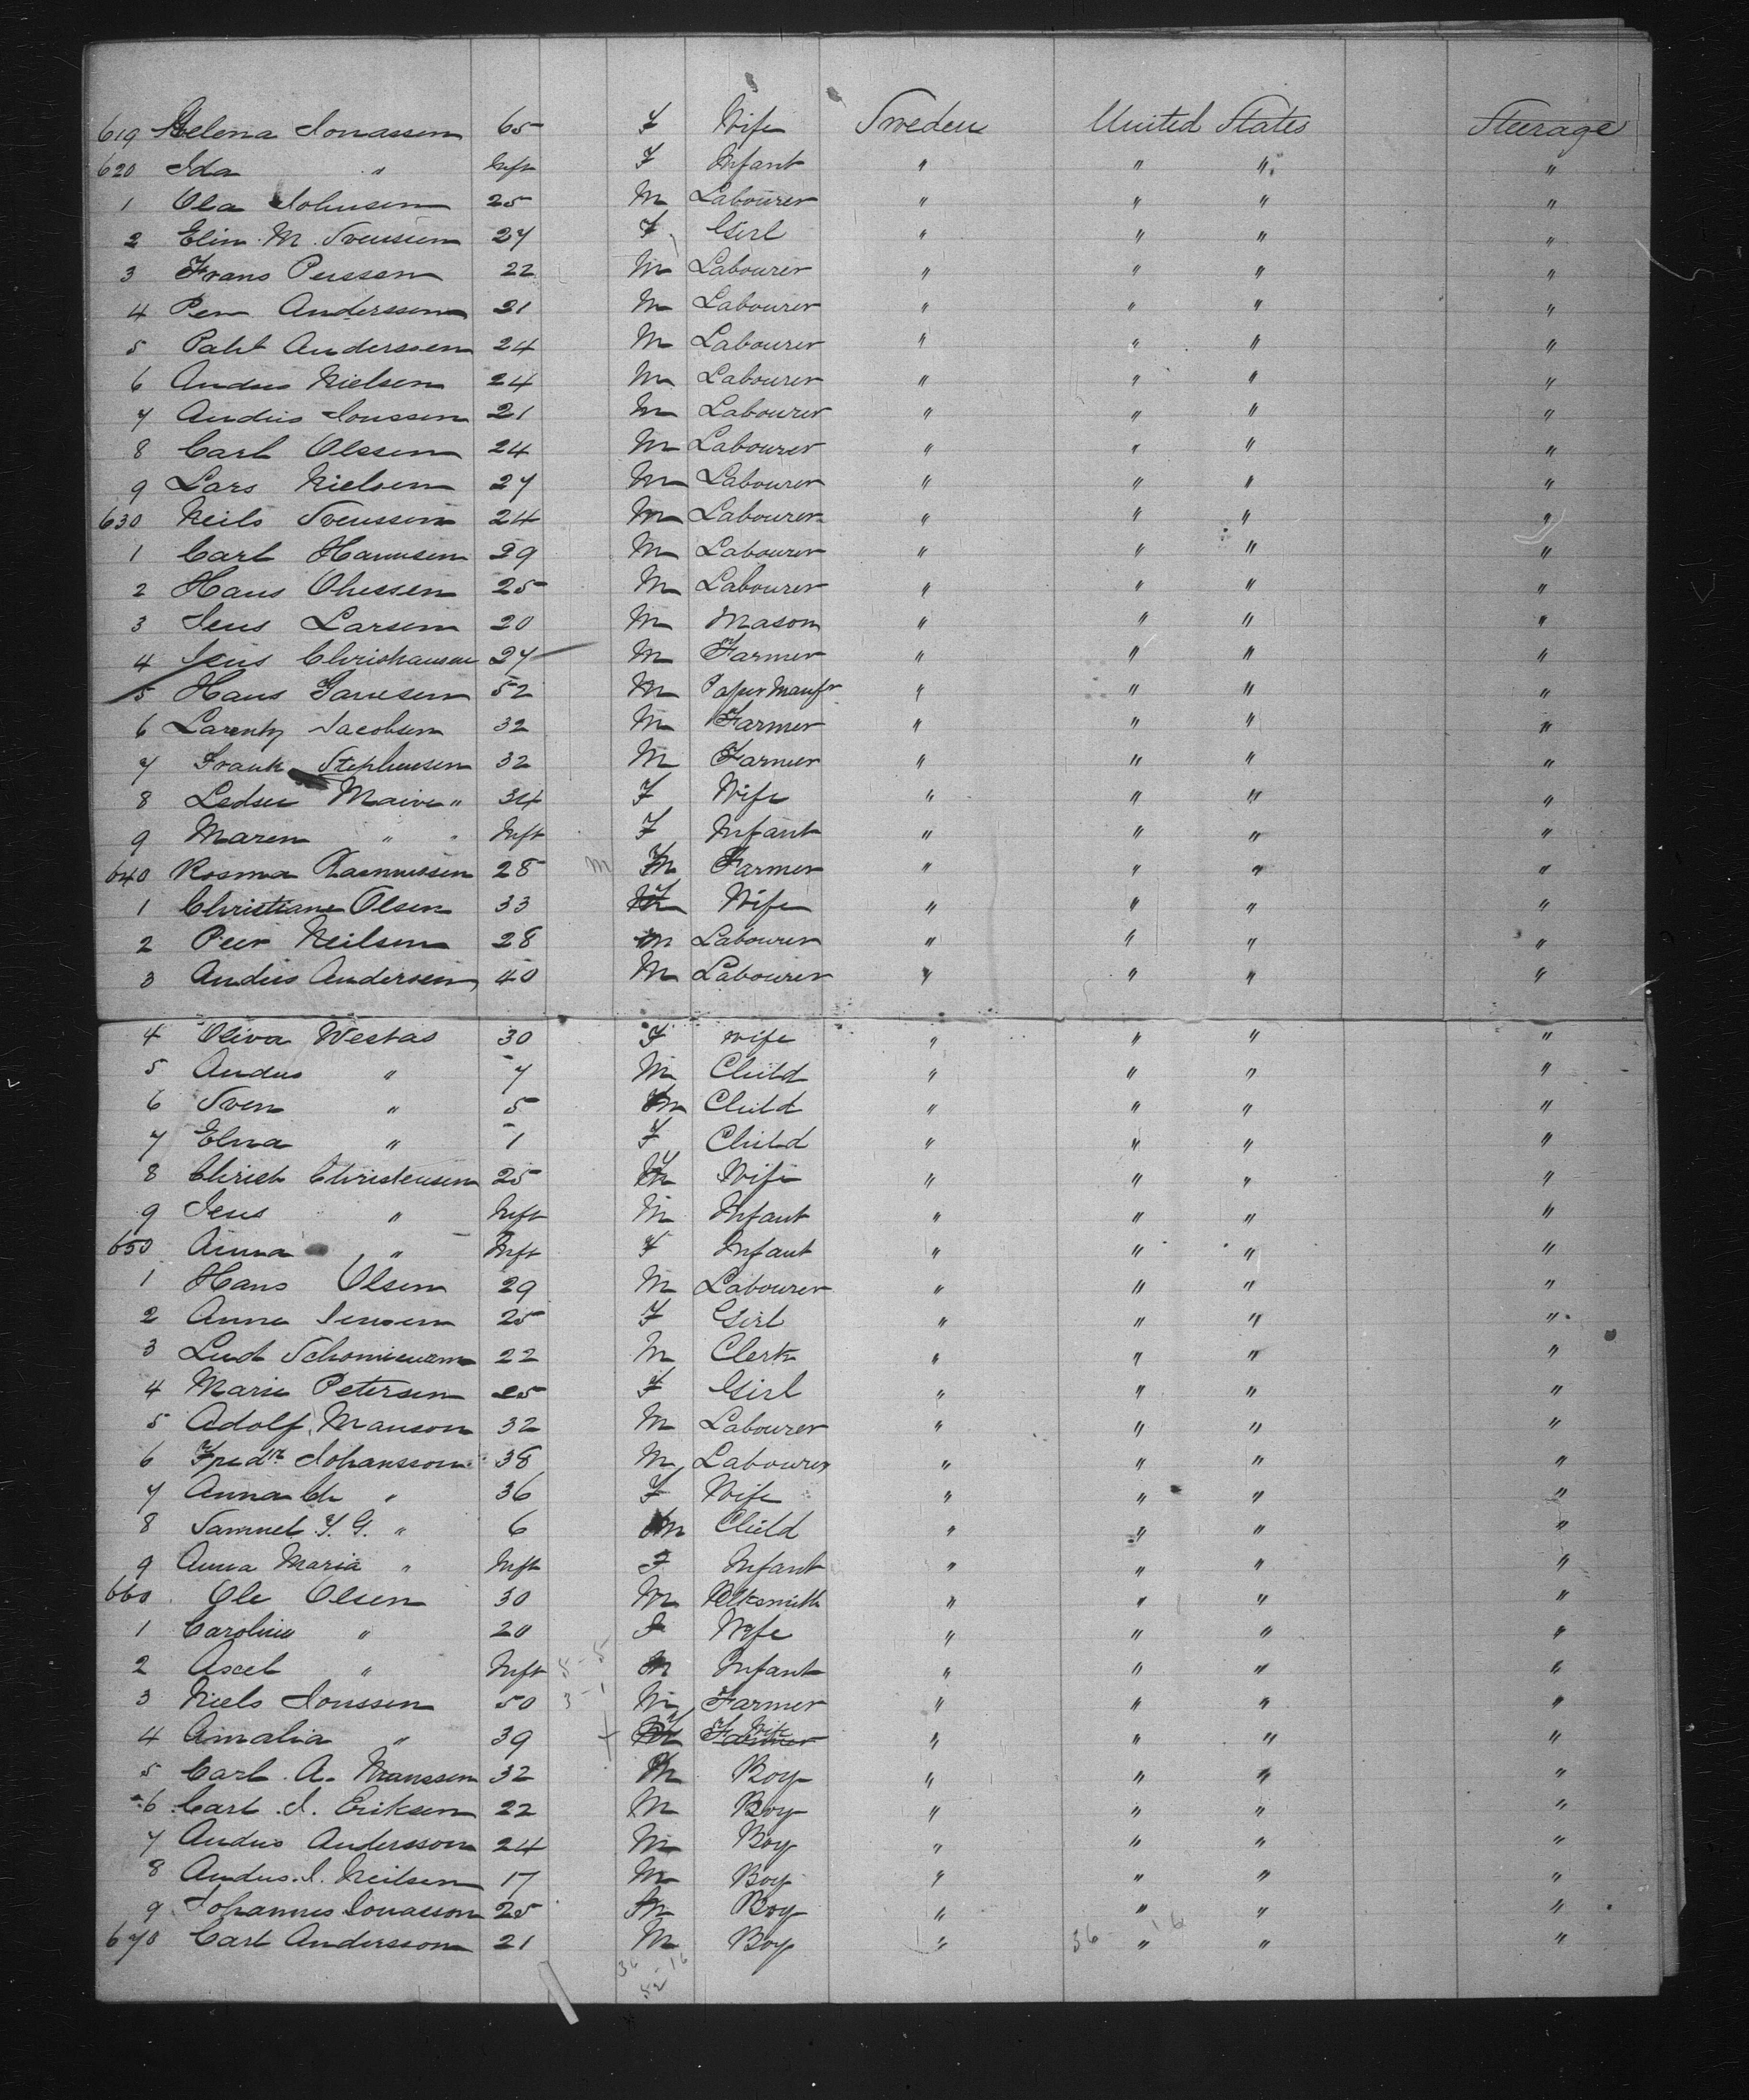 619 Helena Jonassen 65 F Wife Sweden United States Steerage
620 Ida " Inft F Infant " " " "
1 Ola Johnsen 25 M Labourer " " " "
2 Elin M. Svensson 27 F Girl " " " "
3 Frans Perssen 22 M Labourer " " " "
4 Per Anderssen 21 M Labourer " " " "
5 Anderssen 24 M Labourer " " " "
6 Andres Nielsen 24 M Labourer " " " "
7 Andres Jonssen 21 M Labourer " " " "
8 Carl Olssen 24 M Labourer " " " "
9 Lars Nielsen 27 M Labourer " " " "
630 Neils Svenssen 24 M Labourer " " " "
1 Carl Hanssen 29 M Labourer " " " "
2 Hans 25 M Labourer " " " "
3 Jens Larsen 20 M Mason " " " "
4 Jens Christiansen 27 M Farmer " " " "
5 Hans 52 M Paper Manufr " " " "
6 Larentz Jacobsen 32 M Farmer " " " "
7 Frank Stephensen 32 M Farmer " " " "
8 Maive " 34 F Wife " " " "
9 Maren " " Inft F Infant " " " "
640 Rosma Rasmussen 28 M M Farmer " " " "
1 Christiane Olsen 33 F Wife " " " "
2 Peer Neilsen 28 M Labourer " " " "
3 Andres Andersen 40 M Labourer " " " "
4 Oliva Westas 30 F wife " " " "
5 Andres " 7 M Child " " " "
6 Sven " 5 M Child " " " "
7 Elna " 1 F Child " " " "
8 Christ Christensen 25 F Wife " " " "
9 Jens " Inft M Infant " " " "
650 Anna " Inft F Infant " " " "
1 Hans Olsen 29 M Labourer " " " "
2 Anna Jensen 25 F Girl " " " "
3 Lud 22 M Clerk " " " "
4 Marie Petersen 25 F Girl " " " "
5 Adolf Manson 32 M Labourer " " " "
6 Fredk Johansson 38 M Labourer " " " "
7 Anna Ch " 36 F Wife " " " "
8 Samuel F. G. " 6 M Child " " " "
9 Anna Maria " Inft F Infant " " " "
660 Ole Olsen 30 M Blksmith " " " "
1 Carolina " 20 F Wife " " " "
2 Axel " Inft M Infant " " " "
3 Niels Jonssen 50 M Farmer " " " "
4 Amalia " 39 F Farmer Wife " " " "
5 Carl A. Manssen 32 M Boy " " " "
6 Carl J. Eriksen 22 M Boy " " " "
7 Andres Andersson 24 M Boy " " " "
8 Andres J. Neilsen 17 M Boy " " " "
9 Johannes Jonasson 25 M Boy " " " "
670 Carl Andersson 21 M Boy " " " "
36 16
36 16
52